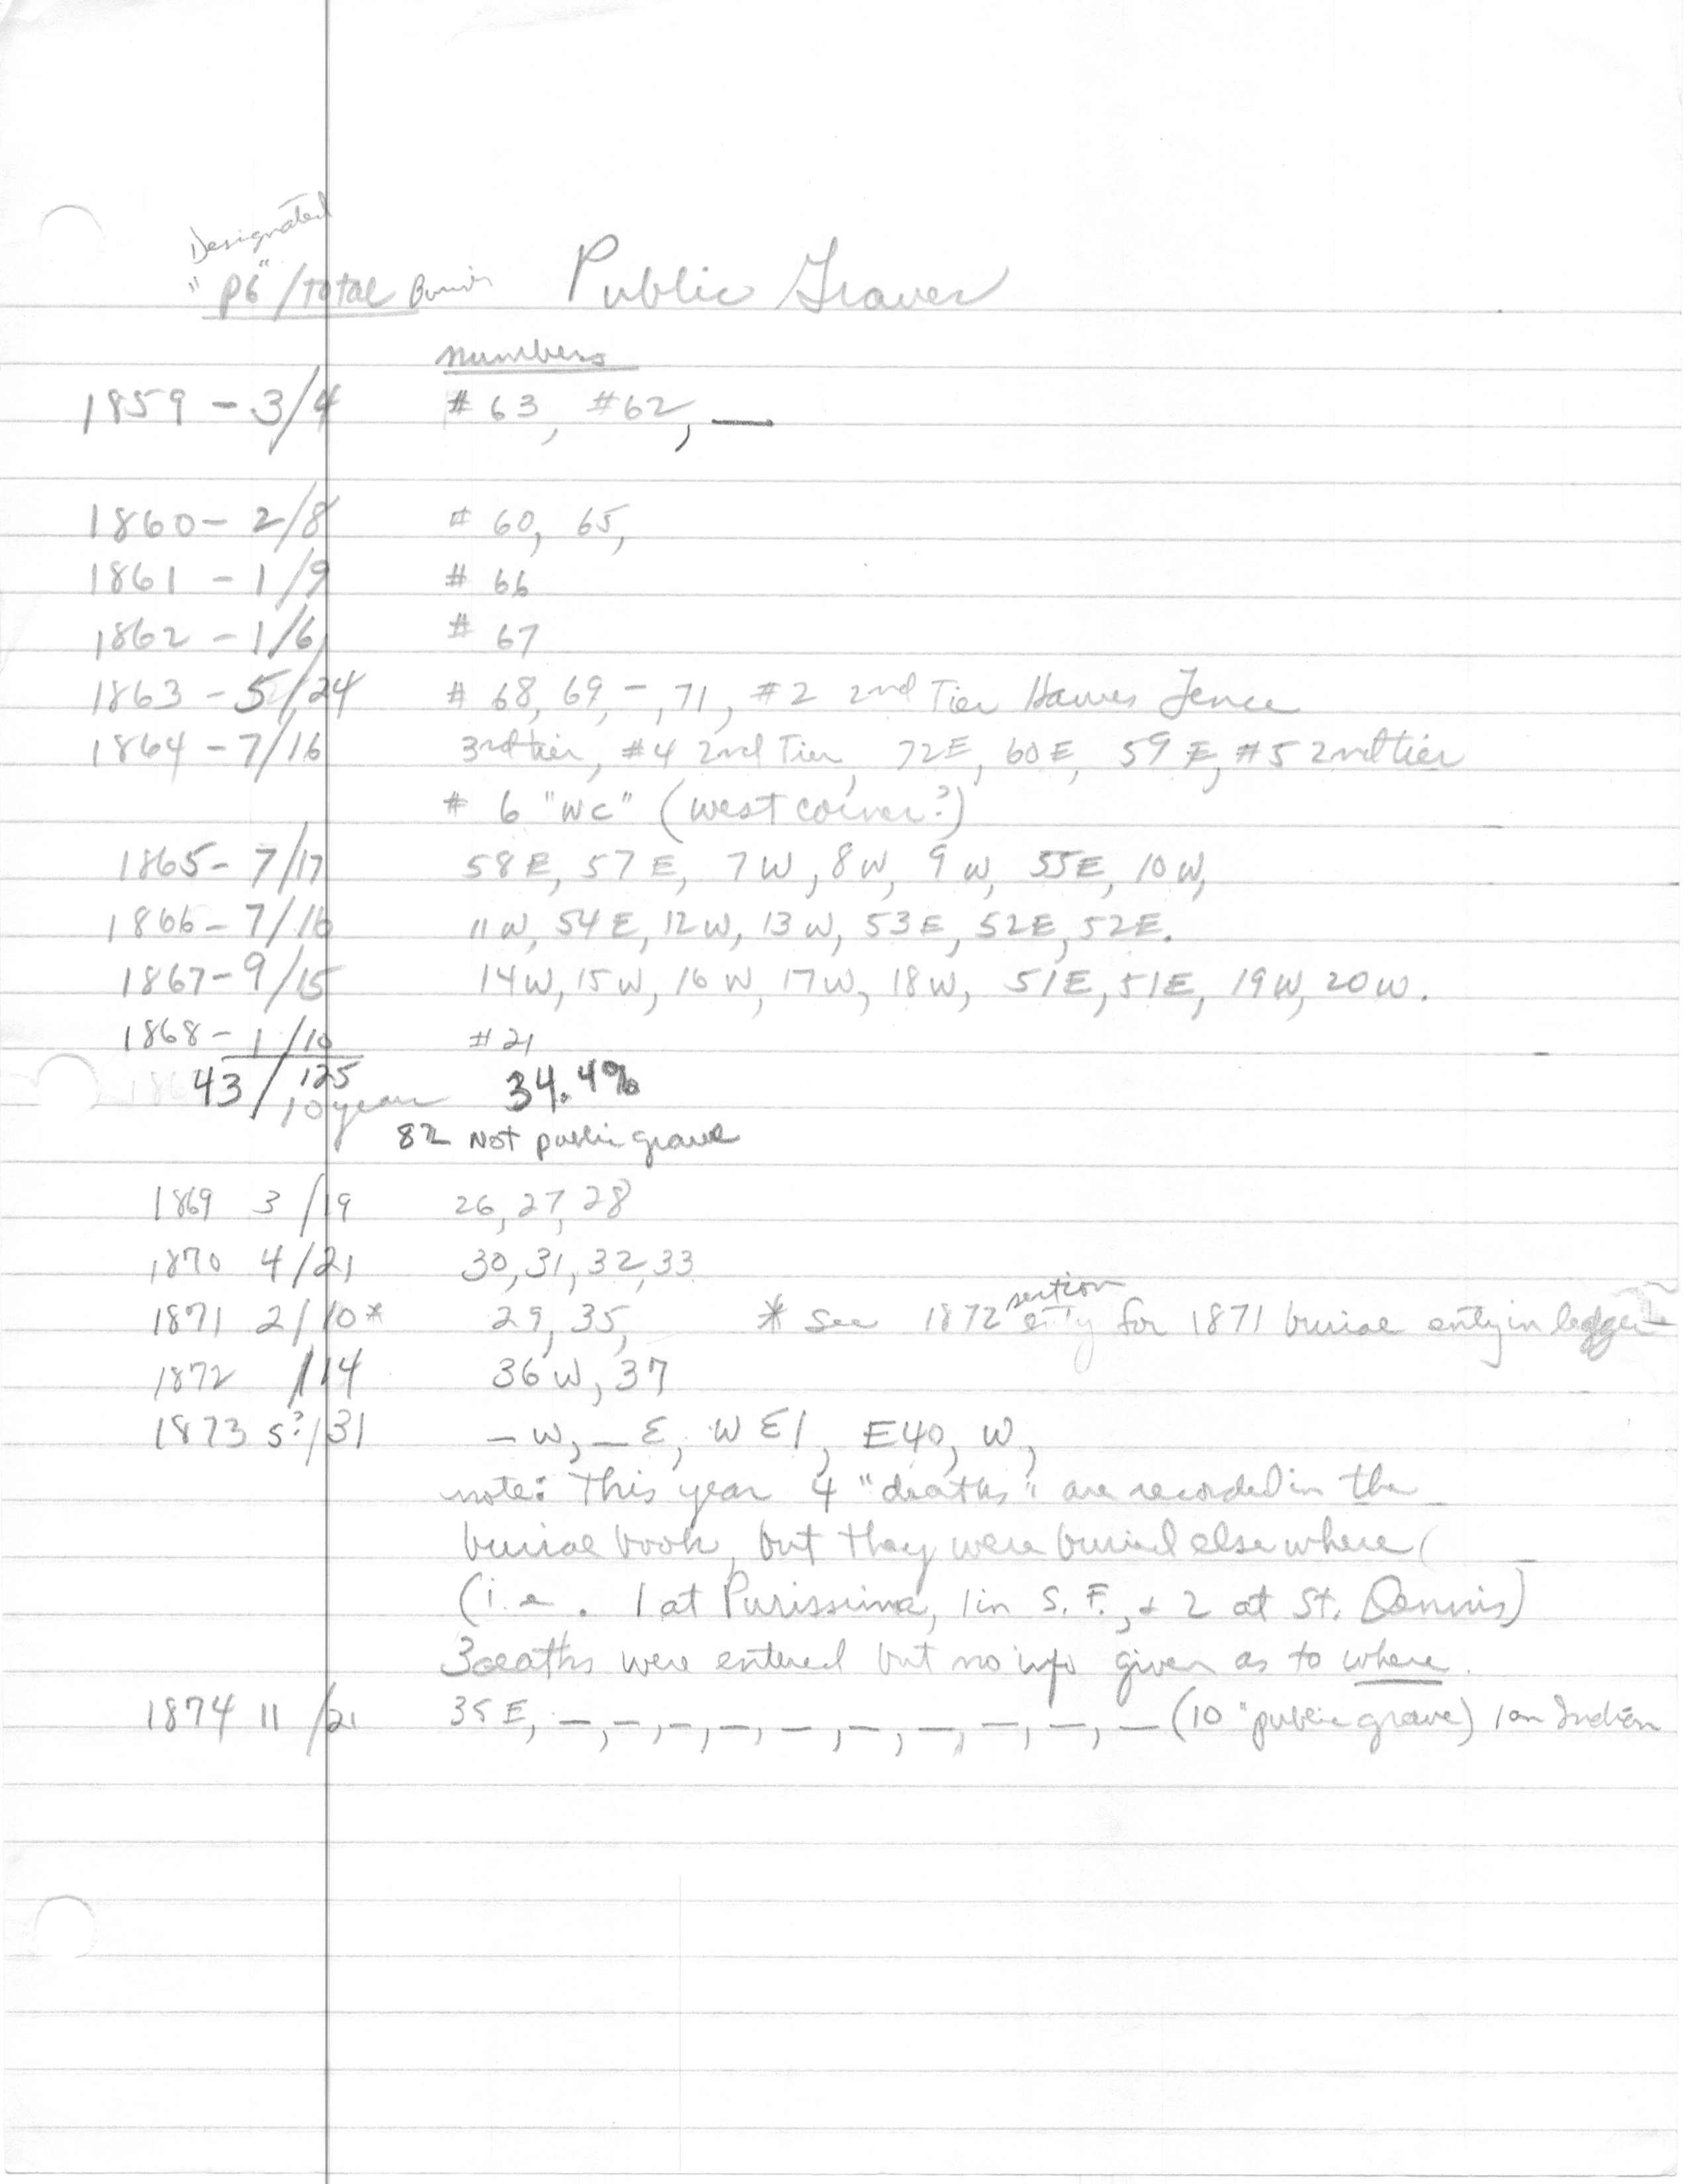 Designated
"PG"/total Burials Public Graves
numbers
1859 - 3/4 # 63, #62, —
1860 - 2/8 # 60, 65,
1861 - 1/9 # 66
1862 - 1/6 # 67
1863 - 5/24 # 68, 69, -, 71, #2 2nd Tier Hawes Fence
1864 - 7/16 3rd tier, #4 2nd Tier, 72E, 60E, 59E, #5 2nd tier
# 6 "WC" (west corner?)
1865 - 7/17 58E, 57E, 7W, 8W, 9W, 55E, 10W,
1866 - 7/16 11W, 54E, 12W, 13W, 53E, 52E, 52E.
1867 - 9/15 14W, 15W, 16W, 17W, 18W, 51E, 51E, 19W, 20W.
1868 - 1/10 #21
43/125 34.4%
10 year
82 Not public grave
1869 3/19 26, 27, 28
1870 4/21 30, 31, 32, 33
section
1871 2/10* 29, 35, * see 1872 entry for 1871 burial entry in ledger
1872 /14 36W, 37
1873 5?/31 — W, — E, W E1, E40, W,
note: This year 4 "deaths" are recorded in the
burial book, but they were buried elsewhere (
(i.e. 1 at Purissima, 1 in S.F., & 2 at St. Dennis)
3 deaths were entered but no info given as to where.
1874 11/21 35E, —, —, —, —, —, —, —, —, —, — (10 "public grave) 1 an Indian